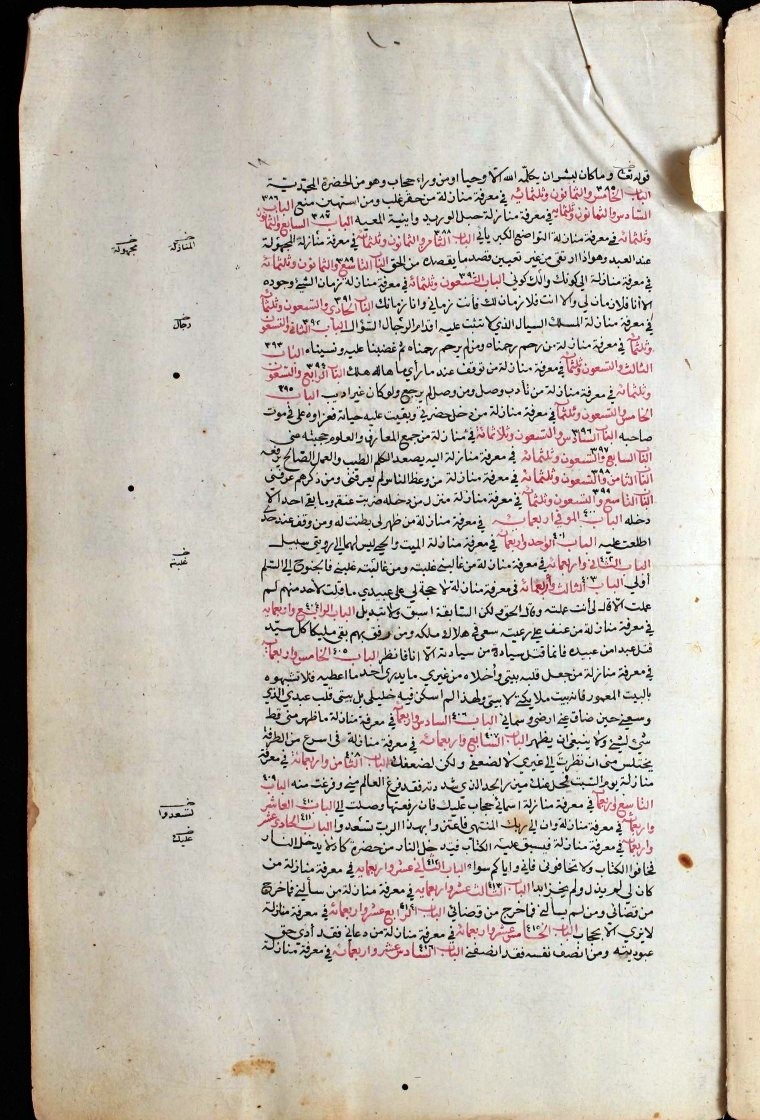 ١٠
١٨
قوله تعالى وما كان لبشر ان يكلمه الله الا وحيا او من وراء حجاب وهو من الحضرة المحمدية
الباب الخامس والثمانون وثلثمائة ٣٨٥ في معرفة منازلة من حقر غلب ومن استهين منع الباب ٣٨٦
السادس والثمانون وثلثمائة في معرفة منازلة حبل الوريد واينية المعية الباب السابع والثمانون ٣٨٧
وثلثمائة في معرفة منازلة التواضع الكبريائي الباب الثامن والثمانون وثلثمائة ٣٨٨ في معرفة منازلة المجهولة
عند العبد وهو اذا ارتقى من غير تعيين قصد ما يقصده من الحق الباب التاسع والثمانون وثلثمائة ٣٨٩
في معرفة منازلة الي كونك والك كوني الباب التسعون وثلثمائة ٣٩٠ في معرفة منازلة زمان الشئ وجوده
الا أنا فلا زمان لي والا انت فلا زمان لك فأنت زماني وانا زمانك الباب الحادي والتسعون وثلثمائة ٣٩١
في معرفة منازلة المسلك السيال الذي لا تثبت عليه اقدام الرجال السؤال الباب الثاني والتسعون ٣٩٢
وثلثمائة في معرفة منازلة من رحم رحمناه ومن لم يرحم رحمناه ثم غضبنا عليه ونسيناه الباب ٣٩٣
الثالث والتسعون وثلثمائة في معرفة منازلة من توقف عند ما رأى ما هاله هلك الباب الرابع والتسعون ٣٩٤
وثلثمائة في معرفة منازلة من تأدب وصل ومن وصل لم يرجع ولو كان غير اديب الباب ٣٩٥
الخامس والتسعون وثلثمائة في معرفة منازلة من دخل حضرتي وبقيت عليه حياته فعزاؤه علي في موت
صاحبه الباب السادس والتسعون وثلاثمائة ٣٩٦ في منازلة من جمع المعارف والعلوم حجبته عني
الباب السابع والتسعون وثلثمائة ٣٩٧ في معرفة منازلة اليه يصعد الكلم الطيب والعمل الصالح يرفعه
الباب الثامن والتسعون وثلثمائة ٣٩٨ في معرفة منازلة من وعظ الناس لم يعرفني ومن ذكرهم عرفني
الباب التاسع والتسعون وثلثمائة ٣٩٩ في معرفة منازلة منزل من دخله ضربت عنقه وما بقي احد الا
دخله الباب الموفي اربعمائة ٤٠٠ في معرفة منازلة من ظهر لي بطنت له ومن وقف عند حدي
اطلعت عليه الباب الواحد واربعمائة ٤٠١ في معرفة منازلة الميت والحي ليس لهما الى رؤيتي سبيل
الباب الثاني واربعمائة ٤٠٢ في معرفة منازلة من غالبني غلبته ومن غالبته غلبني فالجنوح الى السلم
أولى الباب الثالث واربعمائة ٤٠٣ في معرفة منازلة لا حجة لي على عبيدي ما قلت لأحد منهم لم
عملت الا قال لي أنت عملت وقال الحق ولكن السابقة اسبق ولا تبديل الباب الرابع واربعمائة ٤٠٤
في معرفة منازلة من عنف على رعيته سعى في هلاك ملكه ومن رفق بهم بقي مليكا كل سيد
قتل عبدا من عبيده فانما قتل سيادة من سيادته الا انا فانظر الباب الخامس واربعمائة ٤٠٥
في معرفة منازلة من جعل قلبه بيتي وأخلاه من غيري ما يدري احد ما اعطيه فلا تشبهوه
بالبيت المعمور فانه بيت ملائكتي لا بيتي ولهذا لم اسكن فيه خليلي بل بيتي قلب عبدي الذي
وسعني حين ضاق عني ارضي وسمائي الباب السادس واربعمائة ٤٠٦ في معرفة منازلة ما ظهر مني قط
شئ لشئ ولا ينبغي ان يظهر الباب السابع واربعمائة ٤٠٧ في معرفة منازلة في اسرع من الطرفة
يختلس مني ان نظرت الى غيري لا لضعفي ولكن لضعفك الباب الثامن واربعمائة ٤٠٨ في معرفة
منازلة يوم السبت فحل عنك مئزر الجد الذي شددته فقد فرغ العالم مني وفرغت منه الباب ٤٠٩
التاسع واربعمائة في معرفة منازلة اسمائي حجاب عليك فان رفعتها وصلت الي الباب العاشر ٤١٠
واربعمائة في معرفة منازلة وان الى ربك المنتهى فاعتزوا بهذا الرب تسعدوا الباب الحادي عشر ٤١١
واربعمائة في معرفة منازلة فيسبق عليه الكتاب فيدخل النار من حضرة كاد لا يدخل النار
فخافوا الكتاب ولا تخافوني فاني واياكم سواء الباب الثاني عشر واربعمائة ٤١٢ في معرفة منازلة من
كان لي لم يذل ولم يخز ابدا الباب الثالث عشر واربعمائة ٤١٣ في معرفة منازلة من سألني فما خرج
من قضائي ومن لم يسألني فما خرج من قضائي الباب الرابع عشر واربعمائة ٤١٤ في معرفة منازلة
لا يرى الا بحجاب الباب الخامس عشر واربعمائة ٤١٥ في معرفة منازلة من دعاني فقد أدى حق
عبوديته ومن انصف نفسه فقد انصفني الباب السادس عشر واربعمائة ٤١٦ في معرفة منازلة
المنازلة
مجهولة
رجال
غلبته
تسعدوا
عليك